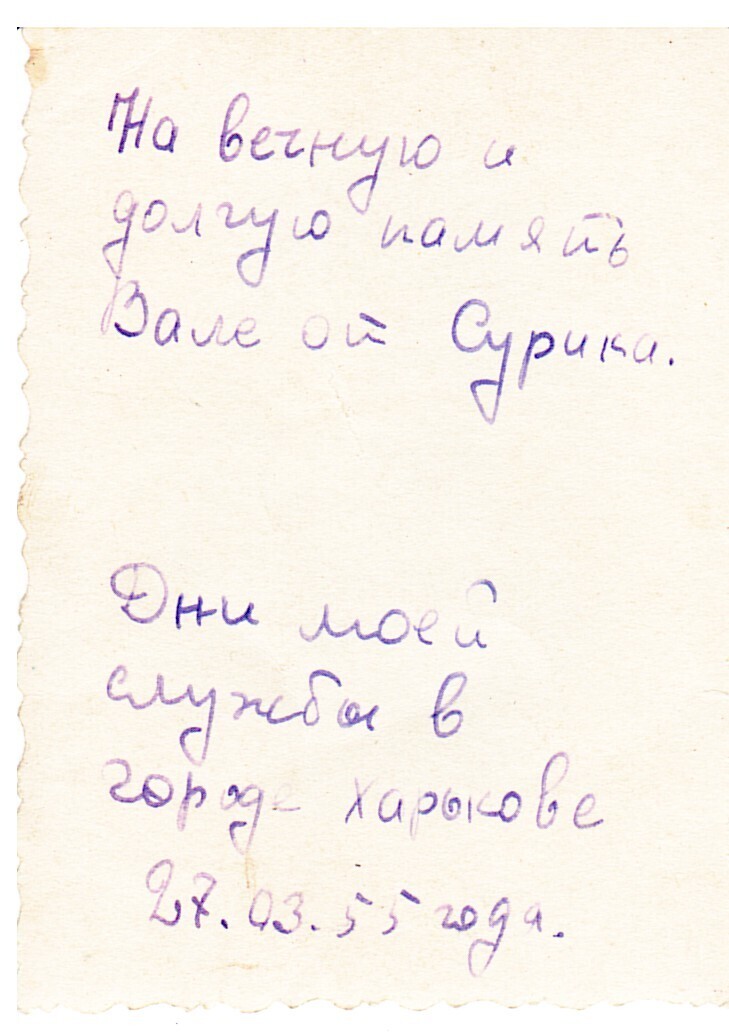 На вечную и
долгую память
Вале от Сурика.
Дни моей
службы в
городе харькове
27.03.55 года.